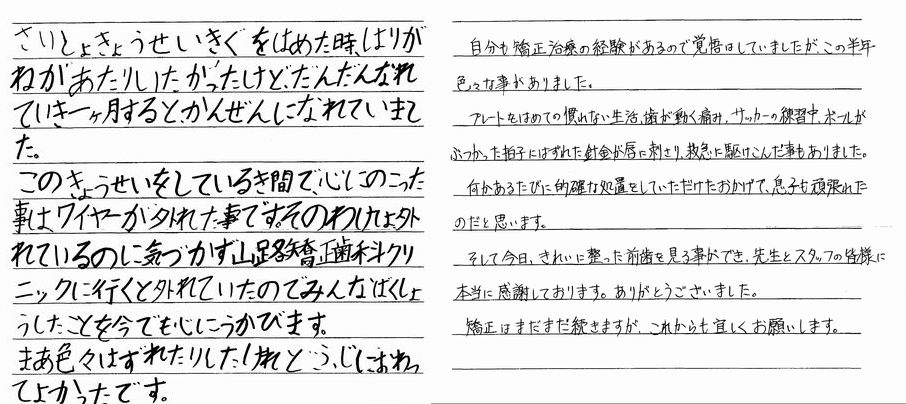 さいしょきょうせいきぐをはめた時、はりが
ねがあたりいたかったけど、だんだんなれ
ていき一ヶ月するとかんぜんになれていまし
た。
このきょうせいをしているき間で心にのこった
事は、ワイヤーが外れた事です。そのわけは外
れているのに気づかず山路矯正歯科クリ
ニックに行くと外れていたのでみんなばくしょ
うしたことを今でも心にうかびます。
まあ色々はずれたりしたけれどうぶじにおわっ
てよかったです。
自分も矯正治療の経験があるので覚悟はしていましたが、この半年
色々な事がありました。
プレートをはめての慣れない生活、歯が動く痛み、サッカーの練習中、ボールが
ぶつかった拍子にはずれた針金が唇に刺さり、救急に駆けこんだ事もありました。
何かあるたびに的確な処置をしていただけたおかげで、息子も頑張れた
のだと思います。
そして今日、きれいに整った前歯を見る事ができ、先生とスタッフの皆様に
本当に感謝しております。ありがとうございました。
矯正はまだまだ続きますが、これからも宜しくお願いします。